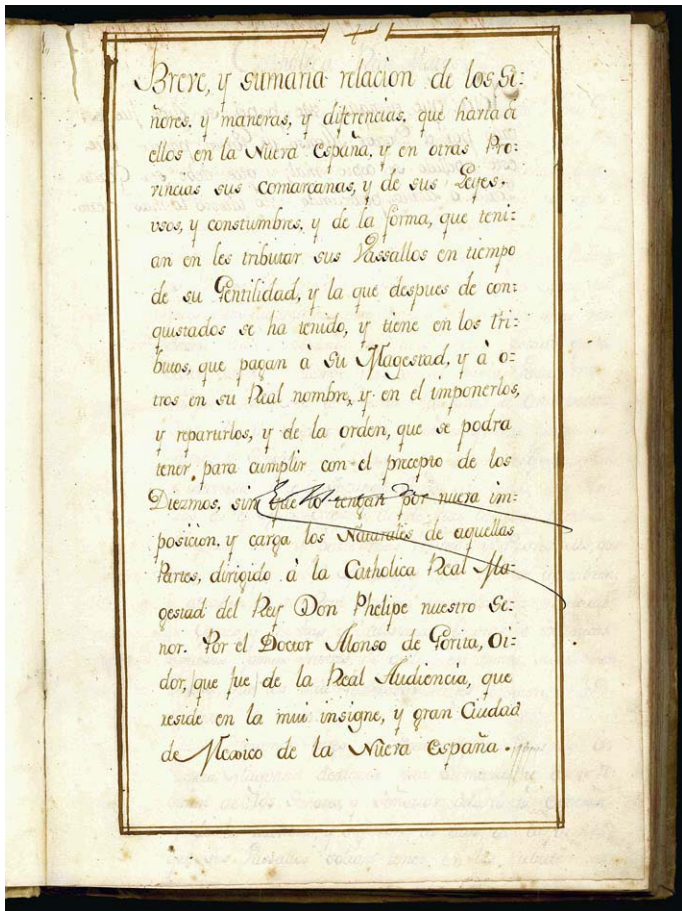 Breve, y sumaria relacion de los Se:
ñores, y maneras, y diferencias, que havia dê
ellos en la Nueva España, y en otras Pro:
vincias sus comarcanas, y de sus Leyes,
vsos, y constumbres, y de la forma, que teni:
an en les tributar sus Vassallos en tiempo
de su Gentilidad, y la que despues de con:
quistados se ha tenido, y tiene en los tri:
butos, que pagan à su Magestad, y à o:
tros en su Real nombre, y en el imponerlos,
y repartirlos, y de la orden, que se podra
tener, para cumplir con el precepto de los
Diezmos, sin que lo tengan por nueva im:
posicion, y carga los Naturales de aquellas
Partes, dirigido à la Catholica Real Ma:
gestad del Rey Don Phelipe nuestro Se:
nor. Por el Doctor Alonso de Gorita, Oi:
dor, que fue de la Real Audiencia, que
reside en la mui insigne, y gran Ciudad
de Mexico de la Nueva España.